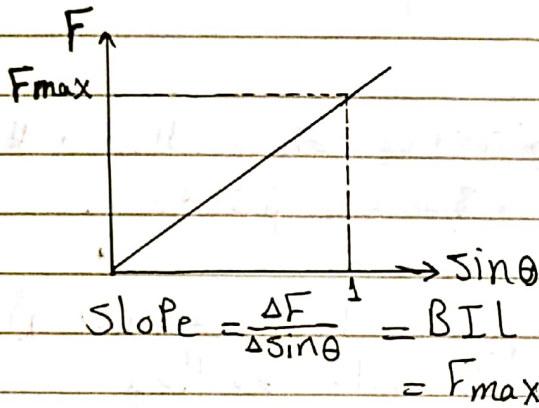 F
Fmax
sinθ
1
Slope = ΔF/Δsinθ = BIL
= Fmax